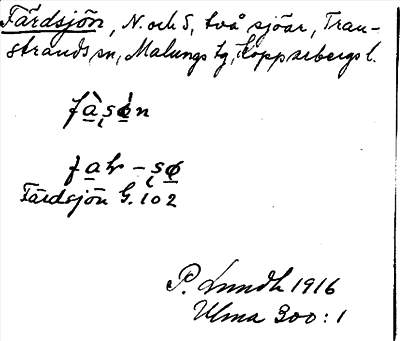 Färdsjön, N. och S, två sjöar, Tran-
strands sn, Malungs tg, Kopparbergs l.
fàsøn
far-sø
Färdsjön G. 102
P. Lundh 1916
Ulma 300:1